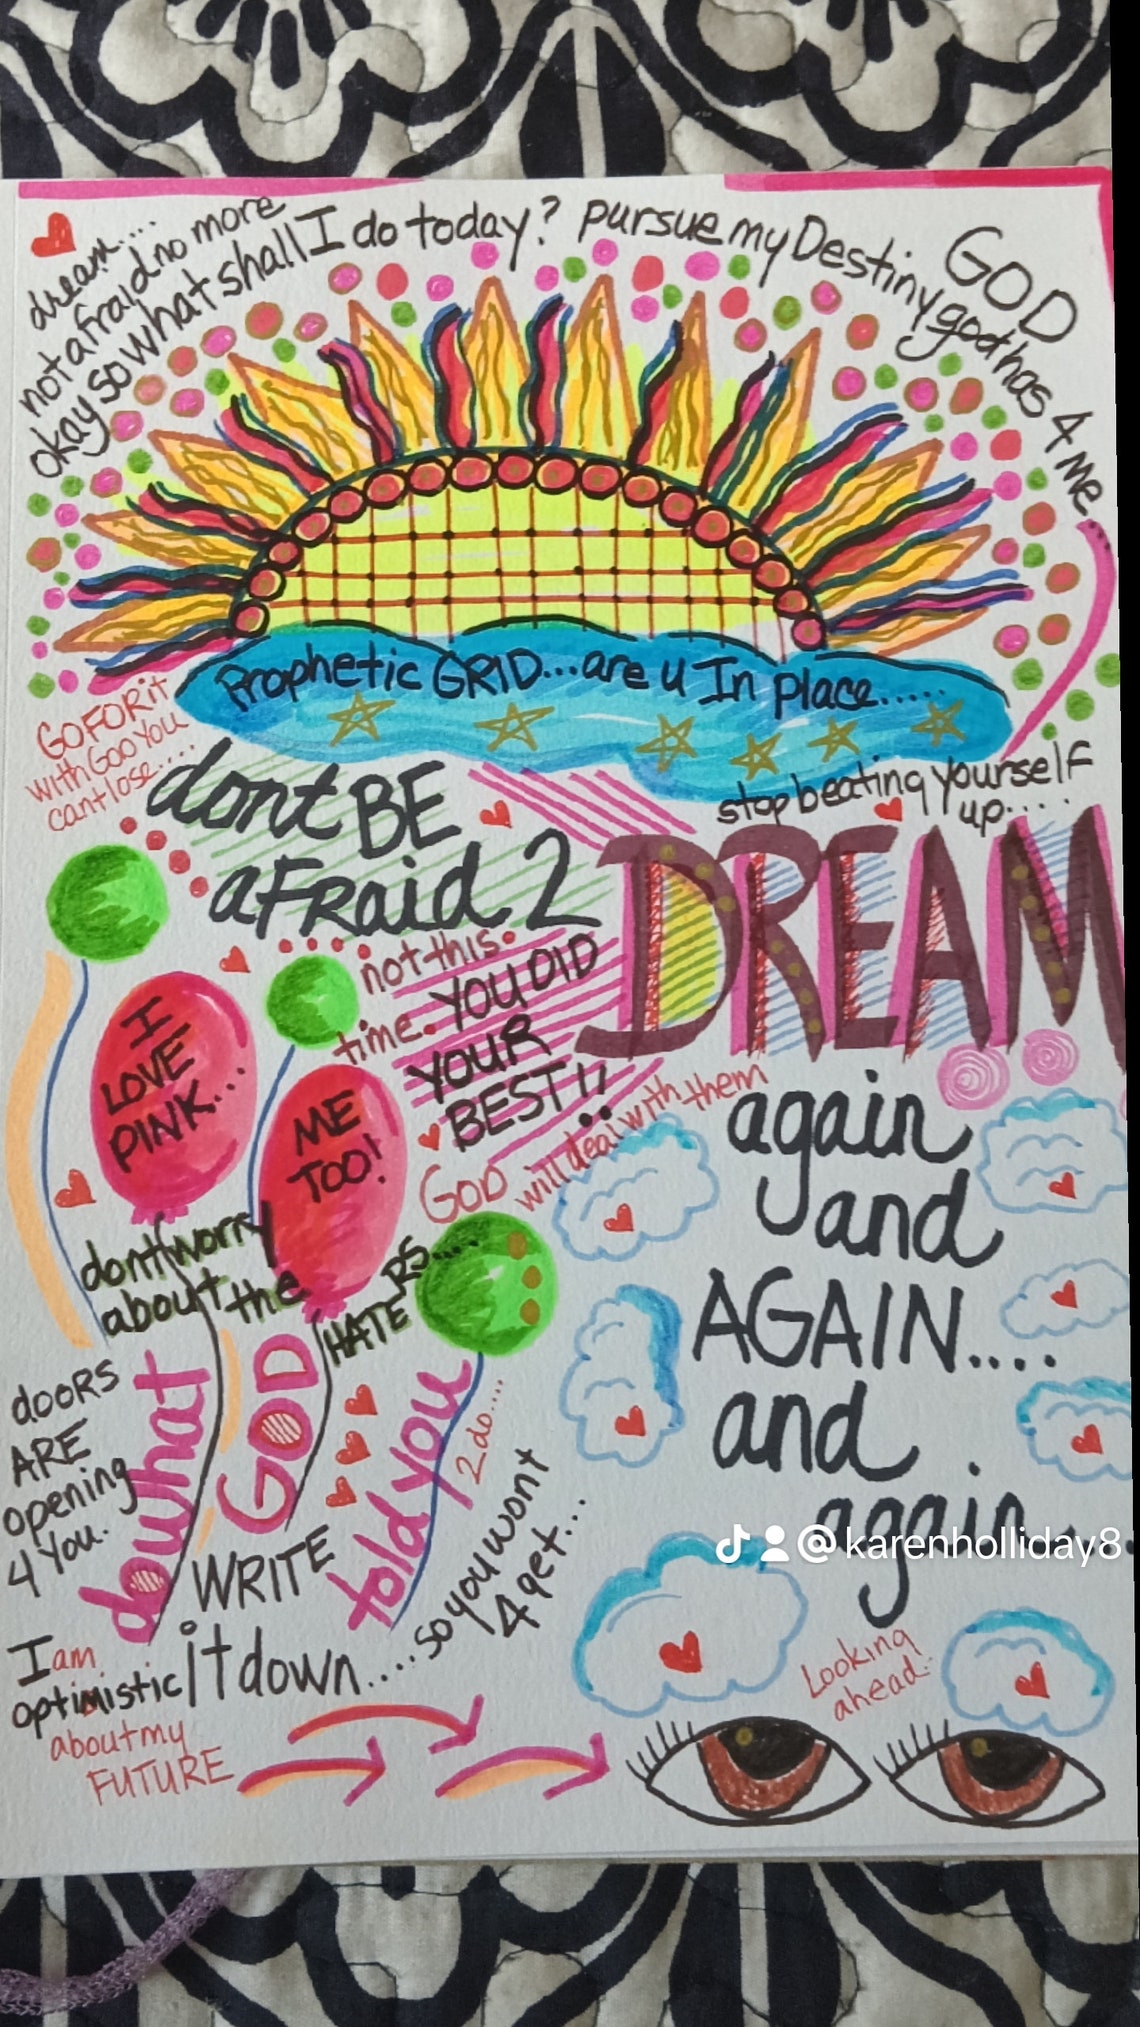 dream....
not afraid no more
okay so what shall I do today? pursue my Destiny god has 4 me..
GOD
Prophetic GRID...are u In place.....
GO FOR it
with God You
cant lose....
stop beating yourself
up.....
dont BE
aFRaid 2
DREAM
again
and
AGAIN....
and
again...
not this
time.. YOU DID
YOUR
BEST!!
GOD will deal with them
I
LOVE
PINK...
ME
TOO!
dont worry
about the
HATERS....
doORS
ARE
opening
4 You.
do what
GOD
told you
2 do....
WRITE
it down....so you wont
4get...
I am
optimistic
about my
FUTURE
Looking
ahead..
@karenholliday8